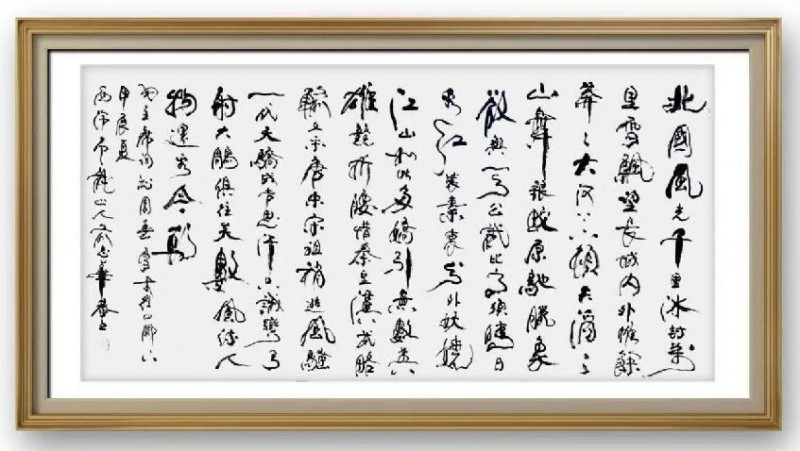 北國風光千里冰封萬
里雪飄望長城內外惟餘
莽々大河上下頓失滔々
山舞銀蛇原馳臘象
欲與天公試比高須晴日
看紅裝素裹分外妖嬈
江山如此多嬌引無數英
雄競折腰惜秦皇漢武略
輸文采唐宗宋祖稍遜風騷
一代天驕成吉思汗只識彎弓
射大鵰俱往矣數風流人
物還看今朝
毛主席詞沁園春雪
甲辰夏